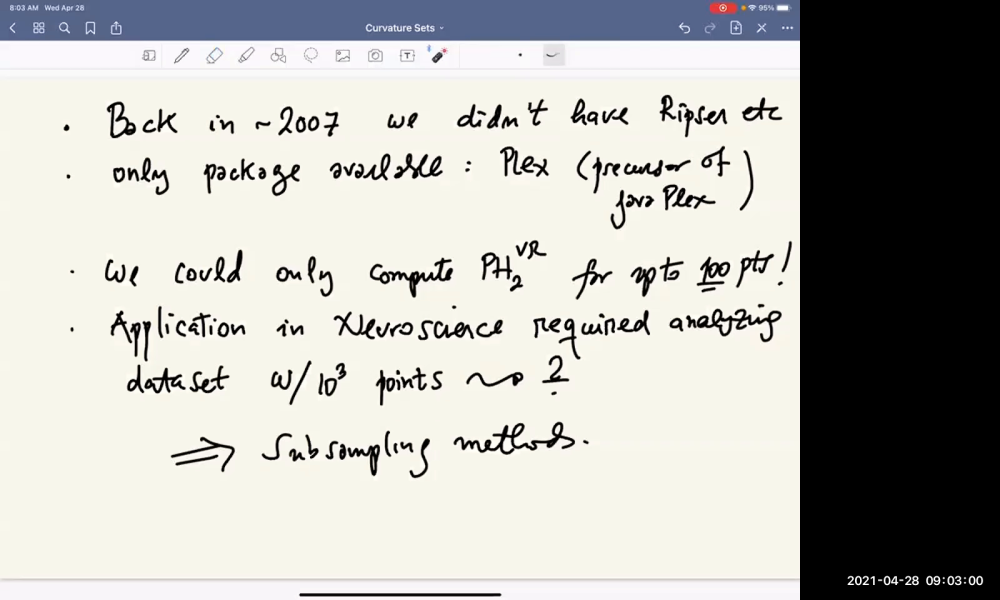 8:03 AM Wed Apr 28
95%
Curvature Sets
• Back in ~2007 we didn't have Ripser etc
• only package available : Plex (precursor of
java Plex)
• We could only compute PH₂^VR for up to 100 pts!
• Application in Neuroscience required analyzing
dataset w/ 10³ points ⇝ ?
⟹ Subsampling methods.
2021-04-28 09:03:00